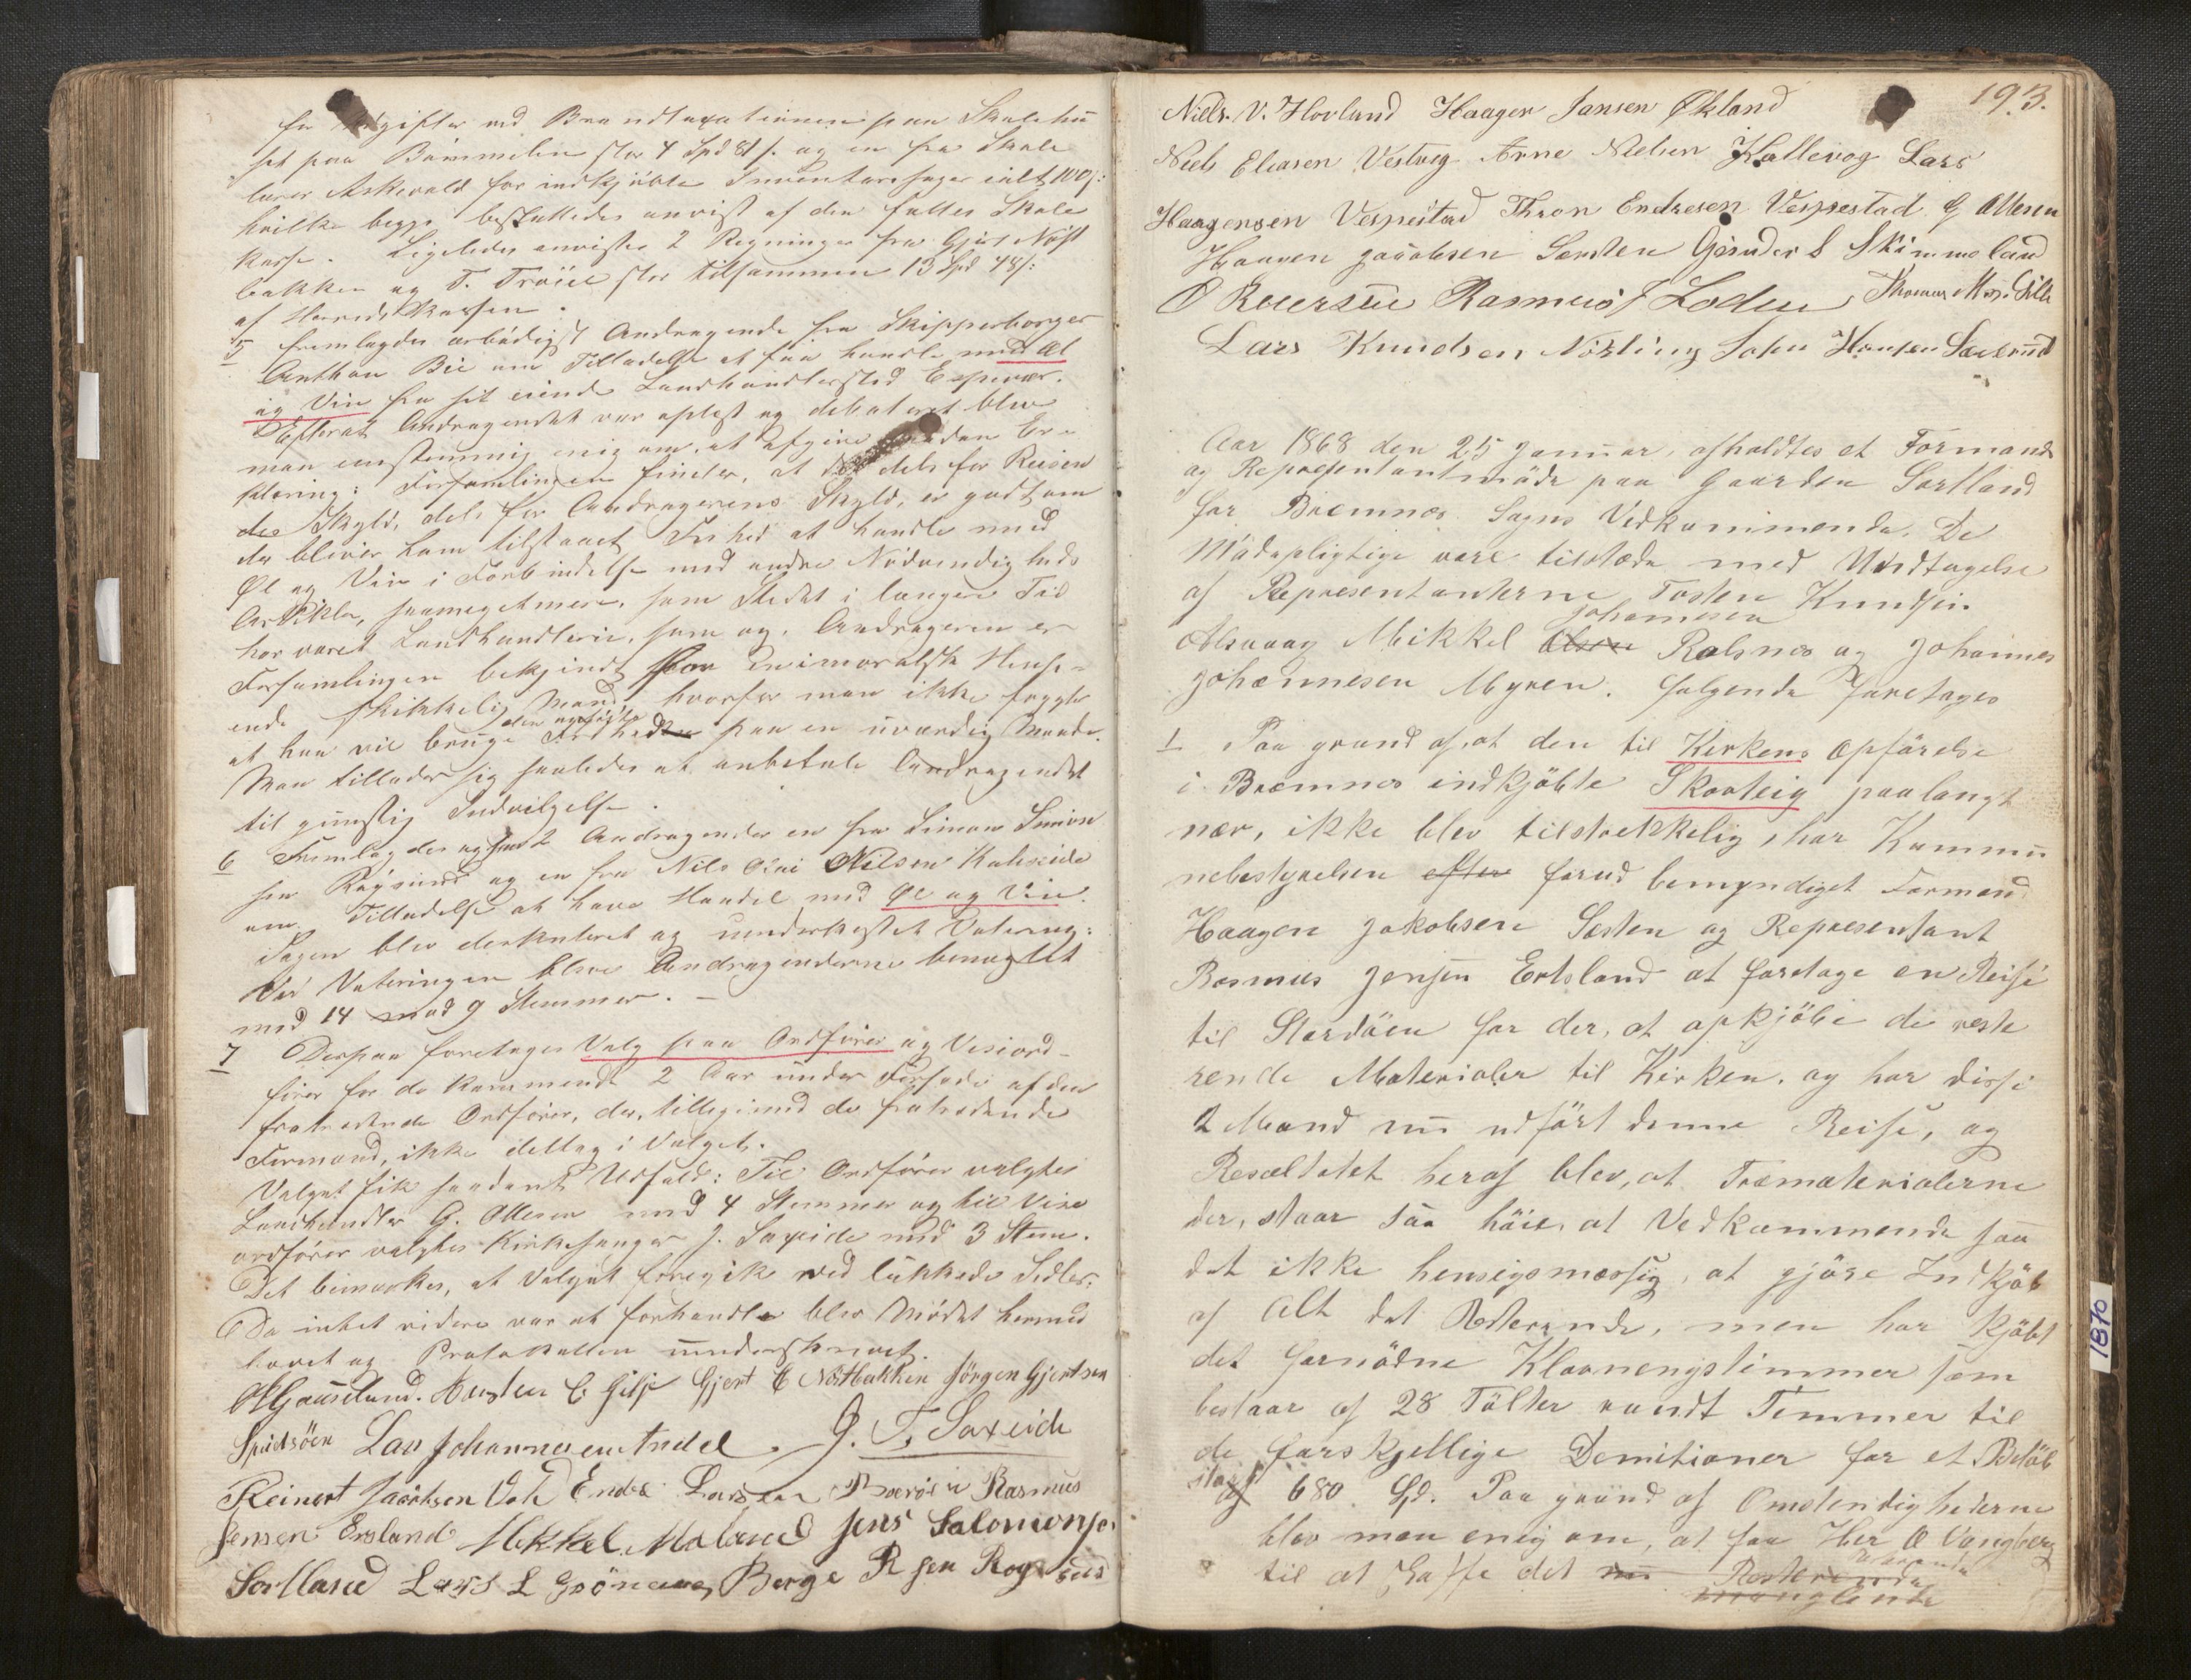 for Udgifter ved Brandtaxationen paa Skolehu
set paa Bömmelen stor 4 Spd 81 s. og en fra Skole
lærer Askevold for indkjöbte Inventariesager ialt 100 s:
hvilke begge besluttedes anvist af den fælles Skole
kasse. Ligeledes anvistes 2 Regninger fra Gjert Nöst
bakken og T. Tröiel stor tilsammen 13 Spd 48 s:
af Herredskassen.
5 fremlagdes ærbödigst Andragende fra Skipperborger
Anthon Bie om Tilladelse at faa handle med Øl
og Vin fra sit eiende Landhandlersted Espevær.
Efterat Andragendet var oplæst og debateret blev
man eenstemmig enig om, at afgive saadan Er-
klæring: Forsamlingen finder, at det dels for Reisen
des Skyld, dels for Andragerens Skyld, er godt om
der bliver ham tilstaaet Frihed at handle med
Øl og Vin i Forbindelse med andre Nödvendigheds
Artikler, saameget mere, som Stedet i længere Tid
har været Landhandlerie, som og, Andrageren er
Forsamlingen bekjendt som en i moralsk Hense-
ende skikkelig Mand, hvorfor man ikke frygter
at han vil bruge den ansögte Friheden paa en uværdig Maade.
Man tillader sig saaledes at anbefale Andragendet
til gunstig Indvilgelse.
6 Fremlagdes ogsaa 2 Andragender en fra Simon Simon
sen Röysund og en fra Nils Kai Nilsen Kuleseide
om Tilladelse at have Handel med Øl og Vin.
Sagen blev diskuteret og underkastet Votering:
Ved Voteringen blev Andragenderne benægtet
med 14 mod 9 Stemmer. –
7 Derpaa foretoges Valg paa Ordförer og Viseord-
förer for de kommende 2 Aar under Forsæde af den
fratrædende Ordförer, der, tilligemed de fratrædende
Formænd, ikke deltog i Valget.
Valget fik saadant Udfald: Til Ordförer valgtes
Landhandler G. Ollesen med 4 Stemmer og til Vise
ordförer valgtes Kirkesanger J. Saxeide med 3 Stem.
Det bemærkes, at Valget foregik ved lukkede Sedler:
Da intet videre var at forhandle blev Mödet hermed
hævet og Protokollen underskrevet.
Austen C. Gilje Gjert E Nöstbakken Jörgen Gjertsen
Spidsöen Lars Johannesen Andal. J. T. Saxeide
Reinert Jacobsen Vold Endre Larsen Rasmus
Jensen Ersland Mikkel Jens Salomonse
Sortland Lars L Grönaas Börge R sen Rögsund
193.
Niels. V. Hovland Haagen Jansen Økland
Niels Eliasen Vestvig Arne Nielsen Kallevog Lars
Haagensen Vespestad Thron Endresen Vespestad G Ollesen
Haagen Jacobsen Sørsten Skimmeland
O Roaldsen Rasmus J Loden
Lars Knudsen Nösling John Hansen
Aar 1868 den 25 Januar, afholdtes et Formands
og Repræsentantmöde paa Gaarden Sortland
for Bremnæs Sogns Vedkommende. De
Mödepligtige vare tilstæde med Undtagelse
af Representanterne Tosten Knudsen
Alsvaag Mikkel Olsen Johannesen Rolsnes og Johannes
Johannesen Myren. Følgende foretoges
1 Paa grund af, at den til Kirkens Opförelse
i Bremnes indkjöbte Skovteig paalangt
nær, ikke blev tilstrekkelig, har Kommu
nebestyrelsen efter forud bemyndiget Formand
Haagen Jakobsen Sæsten og Representant
Rasmus Jensen Ertsland at foretage en Reise
til Stordöen for der, at opkjöbe de reste
rende Materialer til Kirken, og har disse
2 Mænd nu udfört denne Reise, og
Resultatet heraf blev, at Træmaterialerne
der, staar saa höie, at Vedkommende saa
det ikke hensigsmæssig, at gjöre Indkjöb
af Alt det Resterende, men har kjöbt
det fornödne Klavnengstimmer som
bestaar af 28 Tölter rundt Timmer til
de forskjellige Demitioner for et Belöb
stort af 680 Spd. Paa grund af Omstendighederne
blev man enig om, at faa Her O Vangberg
til at skaffe det nu Resterende
manglende
1870